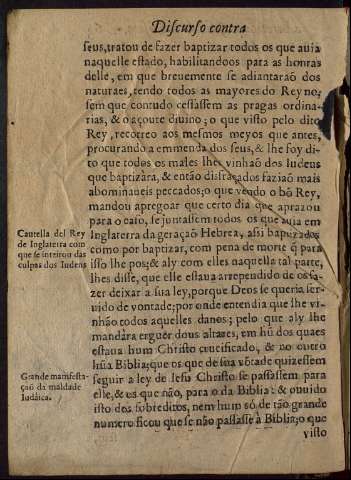 Discurso contra
seus, tratou de fazer baptizar todos os que auia
naquelle estado, habilitandoos para as honras
delle, em que breuemente se adiantaraõ dos
naturaes, tendo todos as mayores do Reyno,
sem que contudo cessassem as pragas ordina-
rias, & o açoute diuino; o que visto pelo dito
Rey, recorreo aos mesmos meyos que antes,
procurando a emmenda dos seus, & lhe foy di-
to que todos os males lhes vinhaõ dos Iudeus
que baptizàra, & então disfraçados faziaõ mais
abominaueis peccados; o que vendo o bõ Rey,
mandou apregoar que certo dia que aprazou
para o caso, se juntassem todos os que auia em
Inglaterra da geraçaõ Hebrea, assi baptizados
como por baptizar, com pena de morte q̃ para
isso lhe pos; & aly com elles naquella tal parte,
lhes disse, que elle estaua arrependido de os fa-
zer deixar a sua ley, porque Deos se queria ser-
uido de vontade; por onde entendia que lhe vi-
nhão todos aquelles danos; pelo que aly lhe
mandàra erguer dous altares, em hũ dos quaes
estaua hum Christo crucificado, & no outro
hũa Biblia; que os que de sua võtade quizessem
seguir a ley de Iesu Christo se passassem para
elle, & os que não, para o da Biblia: & ouuido
isto dos sobreditos, nem hum só de tão grande
numero ficou que se não passasse à Biblia; o que
visto
Cautella del Rey
de Inglaterra com
que se inteirou das
culpas dos Iudeus
Grande manifesta-
çaõ da maldade
Iudàica.